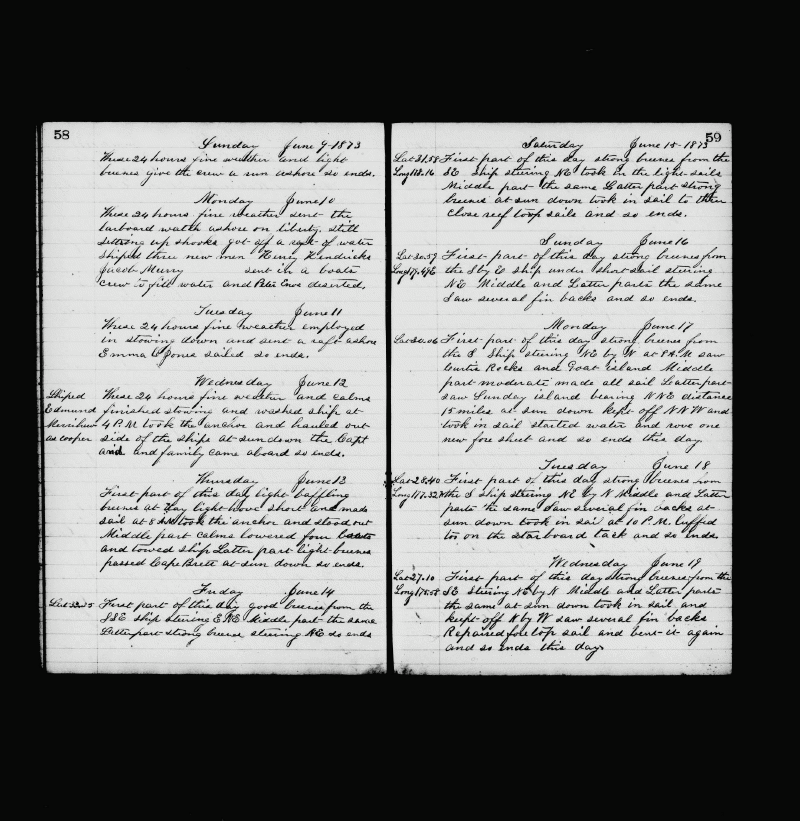 58
Sunday June 9-1873
These 24 hours fine weather and light
breezes give the crew a run ashore so ends.
Monday June 10
These 24 hours fine weather sent the
larboard watch ashore on liberty, still
setting up shooks got off a raft of water
Shiped three new men Henry Hendricks
Jacob Murry sent in a boats
crew to fill water and Peter Enos deserted.
Tuesday June 11
These 24 hours fine weather employed
in stowing down and sent a raft ashore
Emma C Jones sailed so ends.
Wednesday June 12
Shiped
Edmund
Kerrihew
as cooper
These 24 hours fine weather and calms
finished stowing and washed ship at
4 P.M. took the anchor and hauled out
side of the ships at sundown the Capt
and family came aboard so ends.
Thursday June 13
First part of this day light baffling
breezes at Day light hove short and made
sail at 8 AM took the anchor and stood out
Middle part calms lowered four boats
and towed ship Latter part light breezes
passed Cape Brett at sun down so ends.
Friday June 14
First part of this day good breezes from the
SSE ship steering ENE Middle part the same
Latter part strong breeze steering NE so ends
59
Saturday June 15-1873
Lat 31.58
Long 178.14
First part of this day strong breezes from the
SE Ship steering NE took in the light sails
Middle part the same Latter part strong
breezes at sun down took in sail to the
close reef top sails and so ends.
Sunday June 16
Lat 30.57
Long 179.47E
First part of this day strong breezes from
the S by E ship under short sail steering
NE Middle and Latter parts the same
Saw several fin backs and so ends.
Monday June 17
Lat 30.06
First part of this day strong breezes from
the S Ship steering NE by N at 8 A.M. saw
Curtis Rocks and Goat island Middle
part moderate made all sail Latter part
saw Sunday island bearing NNE distance
15 miles at sun down kept off NNW and
took in sail started water and rove one
new fore sheet and so ends this day.
Tuesday June 18
Lat 28.40
Long 177.32W
First part of this day strong breezes from
the S ship steering NE by N Middle and Latter
parts the same Saw several fin backs at
sun down took in sail at 10 P.M. luffed
to on the starboard tack and so ends.
Wednesday June 19
Lat 27.10
Long 175.58
First part of this day strong breezes from the
SE Steering NE by N Middle and Latter parts
the same at sun down took in sail and
kept off N by W saw several fin backs
Repaired fore top sail and bent it again
and so ends this day